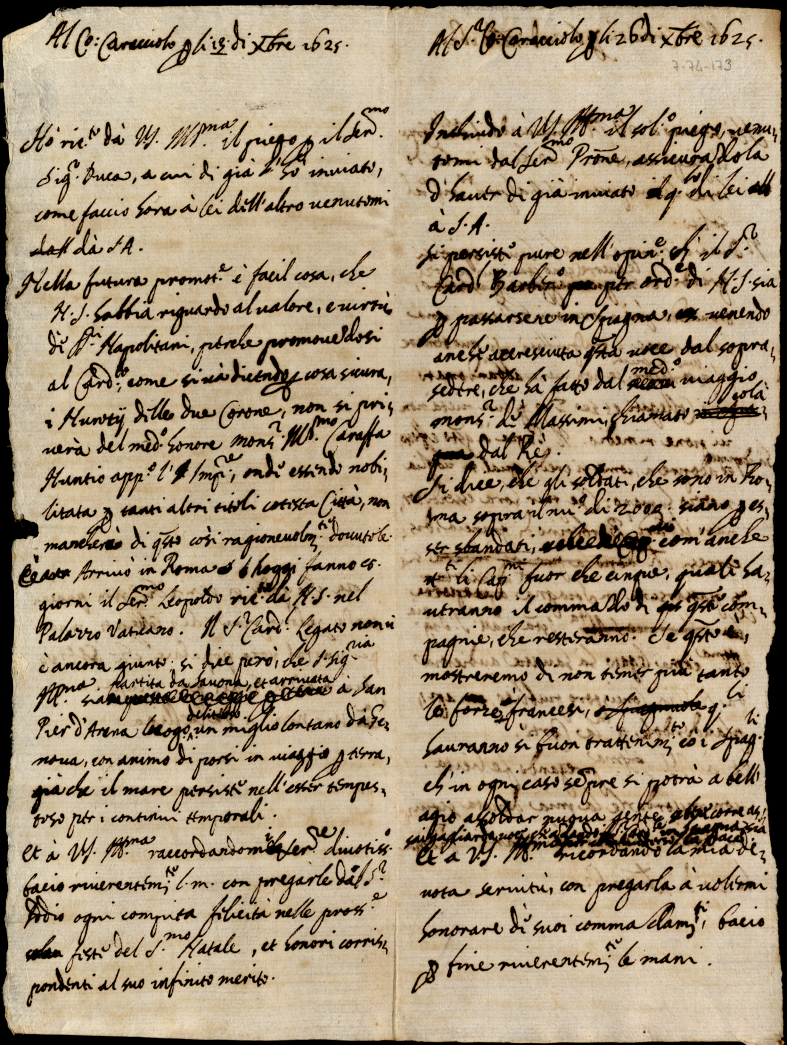 Al Co: Caracciolo p li 19. di Xbre 1625.
Hò ric.to dà VS. Ill.ma il piego p il Ser.mo
Sig.r Duca, a cui di già l'hò inviato,
come faccio hora à lei dell'altro venutomi
dà S.A.
Nella futura promot.e è facil cosa, che
N.S. habbia riguardo al valore, e virtù
di Napolitani, perche promovendosi
al Card.to, come si và dicendo p cosa sicura,
i Huntij delle due Corone, non si pri,
verà del med.o honore mons.r Ill.mo Caraffa
Nuntio app.o l'Imp.re, onde essendo nobi,
litata p tanti altri titoli cotesta Città, non
mancherà di q.sto così ragionevolm.te dovutole.
Arrivò in Roma hoggi fanno
giorni il Ser.mo Leopoldo ric.to da N.S. nel
Palazzo Vaticano. Il S.r Card. Legato non
è ancora giunto: si dice però, che S. Sig.ria
Ill.ma sia partita da Savona, et arrivata à San
Pier d'Arena luogo delitioso, un miglio lontano da Ge,
nova, con animo di porsi in viaggio p terra,
già che il mare persiste nell'esser tempes,
toso per i continui temporali.
Et à VS. Ill.ma raccordandomi Ser.re divotiss.o
bacio riverentem.te l.m. con pregarle dal S.r
Iddio ogni compita felicità nelle pross.e
feste del S.mo Natale, et honori corris,
pondenti al suo infinito merito.
Al S.r Co: Caracciolo p li 26 di Xbre 1625.
7-74-173
Includo à VS. Ill.ma il sol.o piego, venu,
tomi dal Ser.mo Prōne, assicurandola
d'haver di già inviato il q. di lei
à S.A.
Si persiste pure nell'opin.e ch'il S.r
Card. Barbin.o per ord.e di N.S. sia
p passarsene in Spagna, venendo
anche accresciuta q.sta voce dal sopra,
sedere, che hà fatto dal med.o viaggio
mons.r de Massimi, chiamato colà
dal Rè.
Si dice, che gli soldati, che sono in Ro,
ma sopra il nu.o di 2000. siano p es,
ser sbandati, com'anche
li Cap.ni fuor che cinque, quali ha,
vranno il commando di q.ste com,
pagnie, che resteranno. Se q.sto è,
mostreremo di non temer più tanto
le forze francesi, q.li
hauranno sì buon trattenim.to cò i Spag.li
ch'in ogni caso sẽpre si potrà a bell'
agio assoldar nuova gente.
Et à VS. Ill.ma ricordando la mia de,
vota servitù, con pregarla à volermi
honorare de suoi commandam.ti, bacio
p fine riverentem.te le mani.